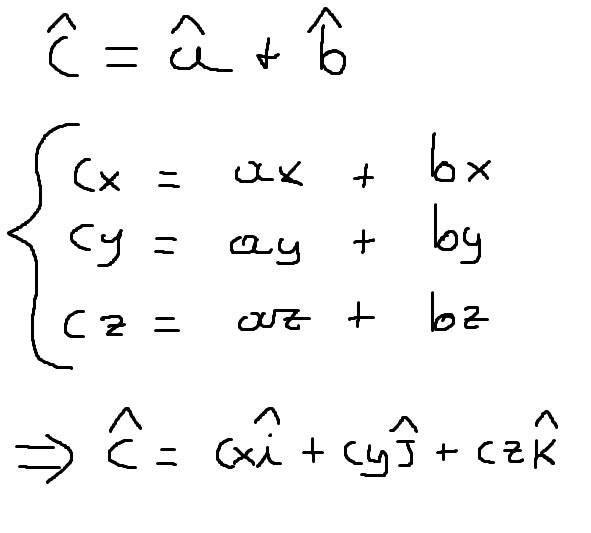 ĉ = â + b̂
cx = ax + bx
cy = ay + by
cz = az + bz
⇒ ĉ = cxî + cyĵ + czk̂